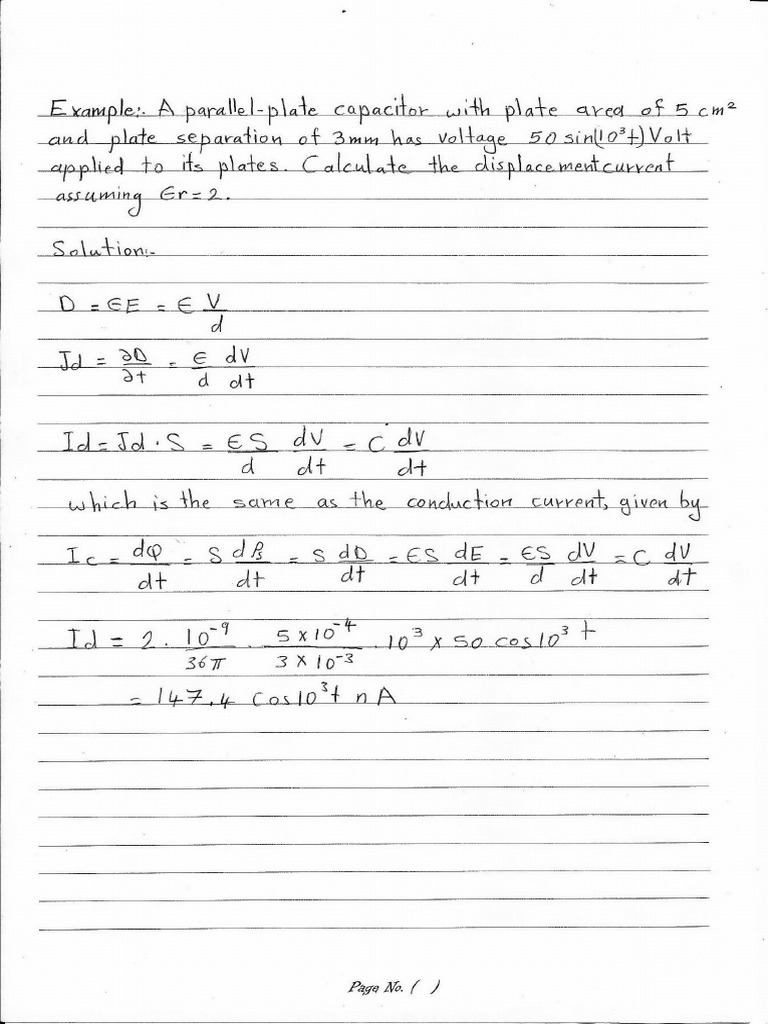 Example:. A parallel-plate capacitor with plate area of 5 cm²
and plate separation of 3mm has voltage 50 sin(10³t) Volt
applied to its plates. Calculate the displacement current
assuming Єr = 2.
Solution:-
D = ЄE = Є V/d
Jd = ∂D/∂t = Є/d dV/dt
Id = Jd · S = ЄS/d dV/dt = C dV/dt
which is the same as the conduction current, given by
Ic = dQ/dt = S dρs/dt = S dD/dt = ЄS dE/dt = ЄS/d dV/dt = C dV/dt
Id = 2 · 10⁻⁹/36π · 5 × 10⁻⁴/3 × 10⁻³ · 10³ × 50 cos10³ t
= 147.4 cos10³t nA
Page No. ( )